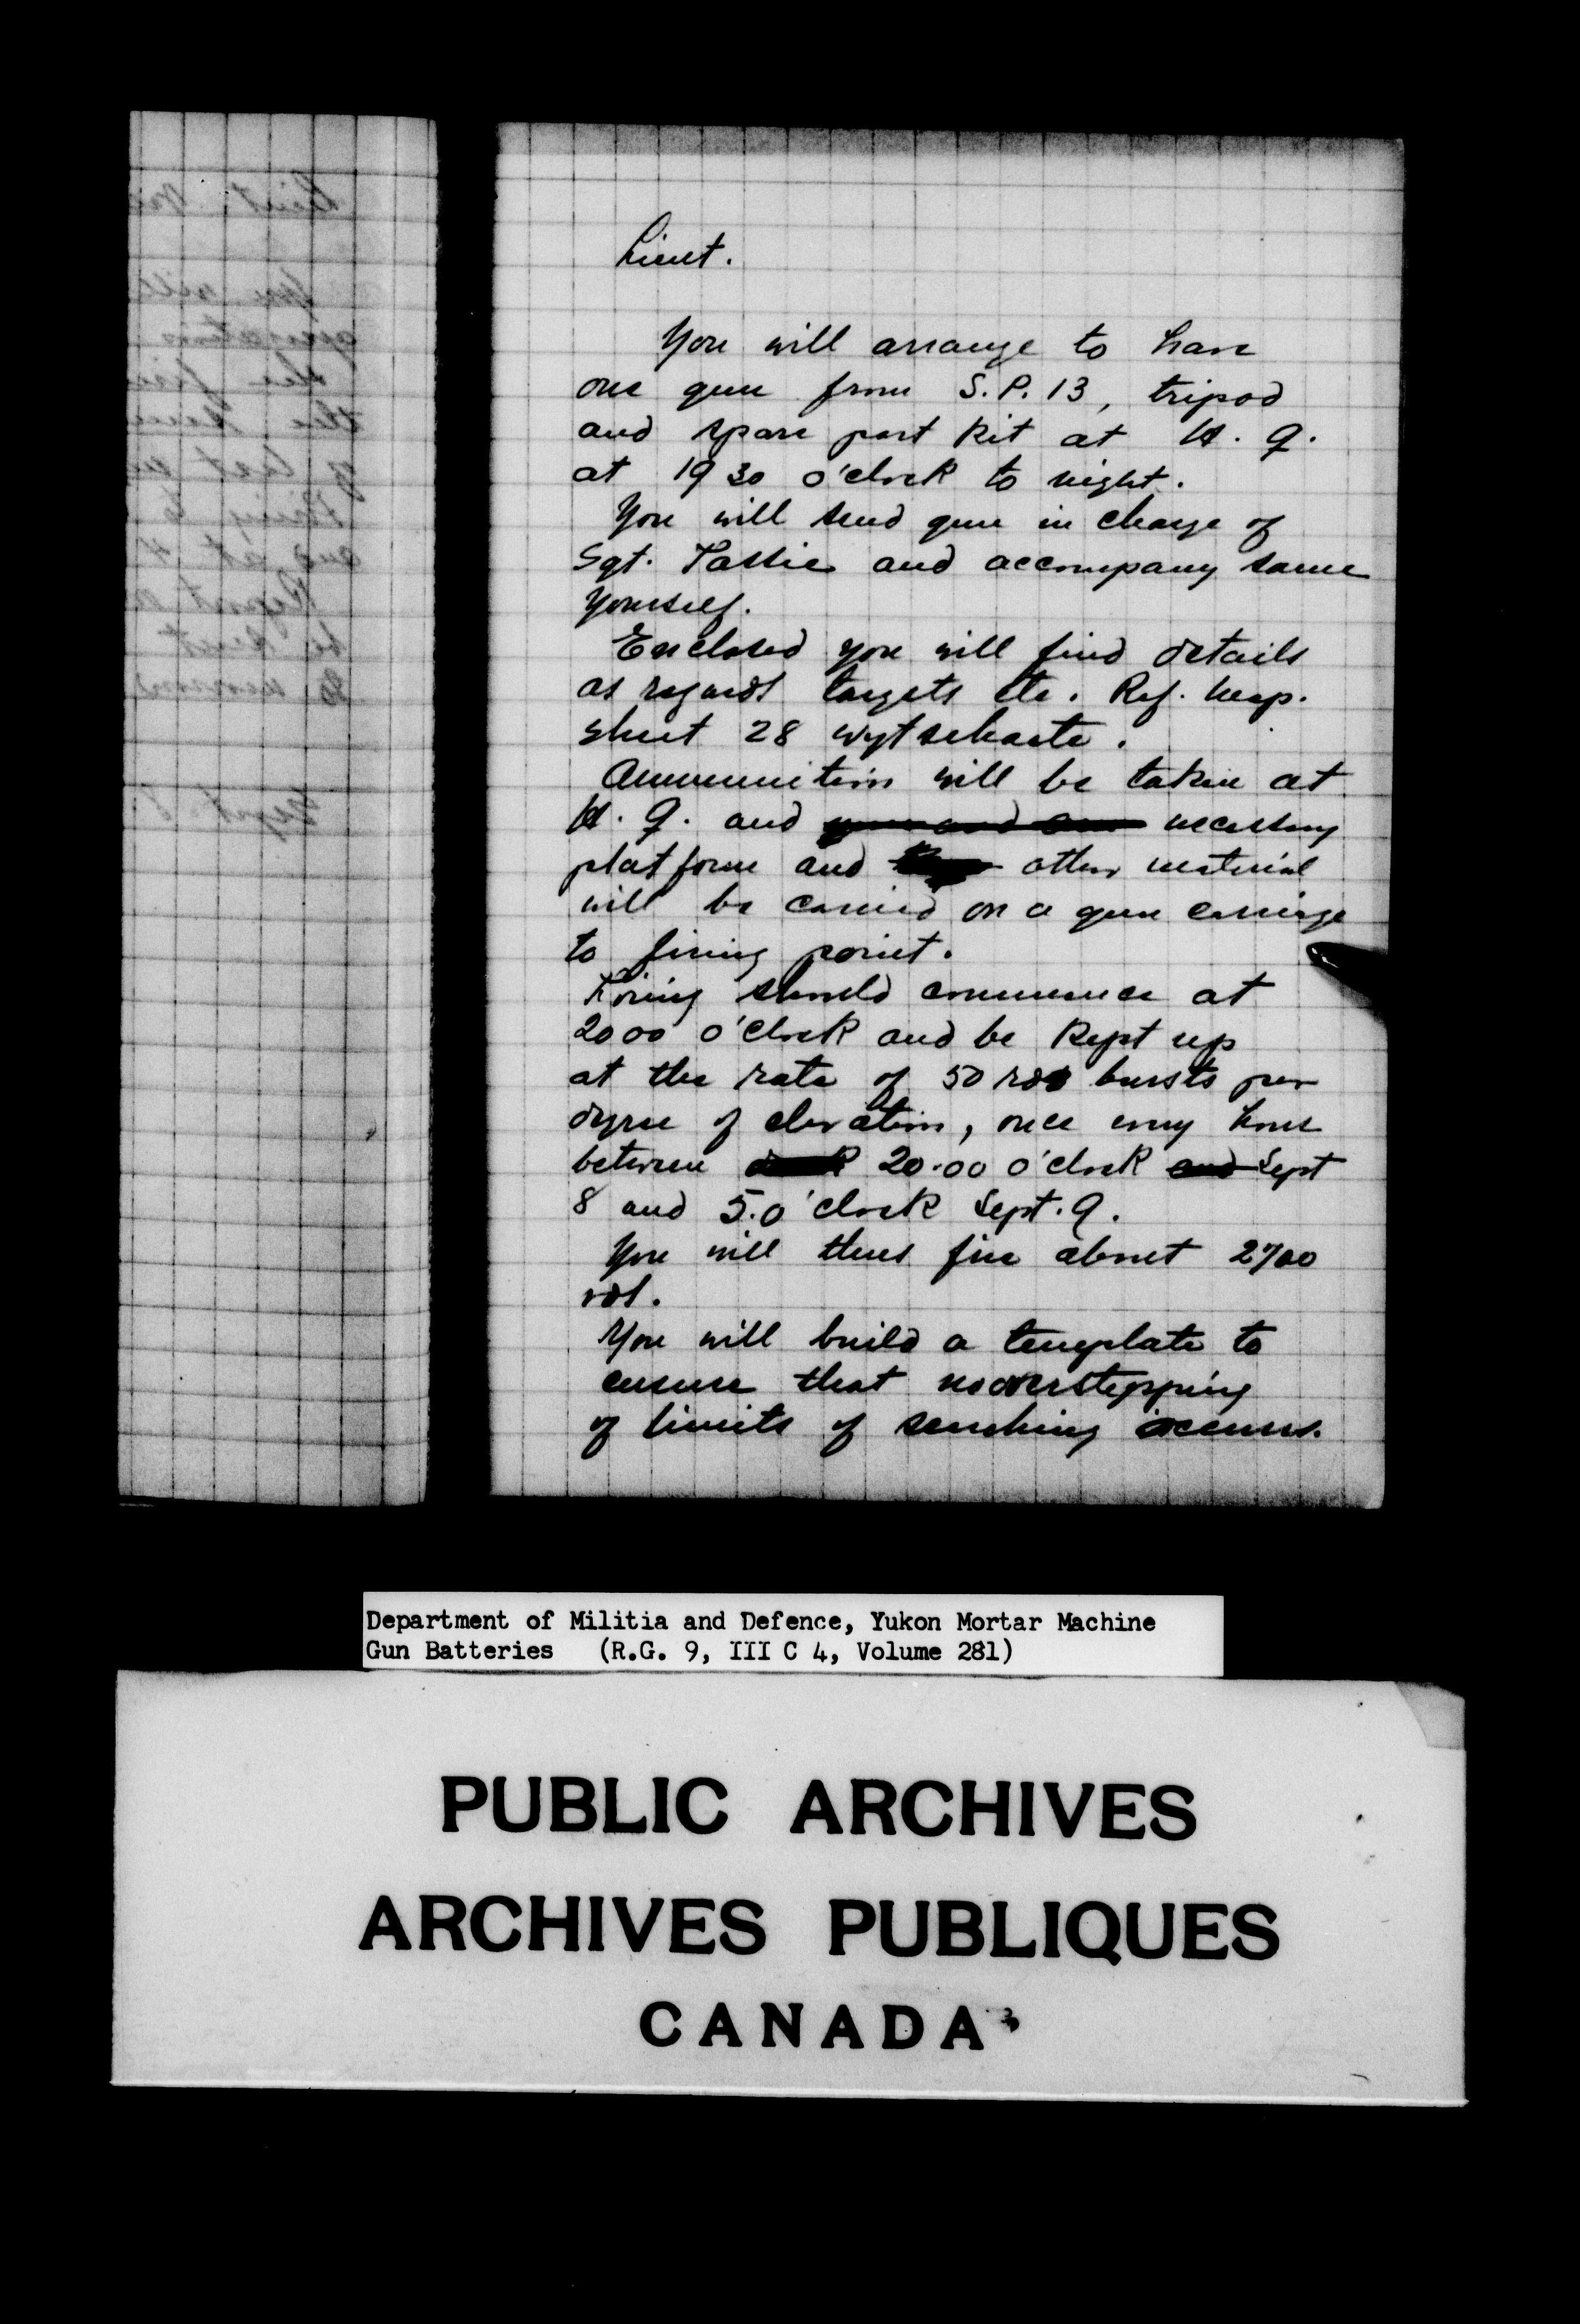 Lieut.
You will arrange to have
one gun from S.P. 13, tripod
and spare part kit at H.Q.
at 1930 o'clock to night.
You will send gun in charge of
Sgt. Tassie and accompany same
yourself.
Enclosed you will find details
as regards targets etc. Ref. Map.
sheet 28 Wytschaete.
Ammunition will be taken at
H.Q. and necessary
platform and other material
will be carried on a gun carriage
to firing point.
Firing should commence at
2000 o'clock and be kept up
at the rate of 50 rds bursts per
degree of elevation, once every hour
between 20.00 o'clock and Sept
8 and 5.0'clock Sept. 9.
You will thus fire about 2700
rds.
You will build a template to
ensure that no overstepping
of limits of searching occurs.
Department of Militia and Defence, Yukon Mortar Machine
Gun Batteries (R.G. 9, III C 4, Volume 281)
PUBLIC ARCHIVES
ARCHIVES PUBLIQUES
CANADA